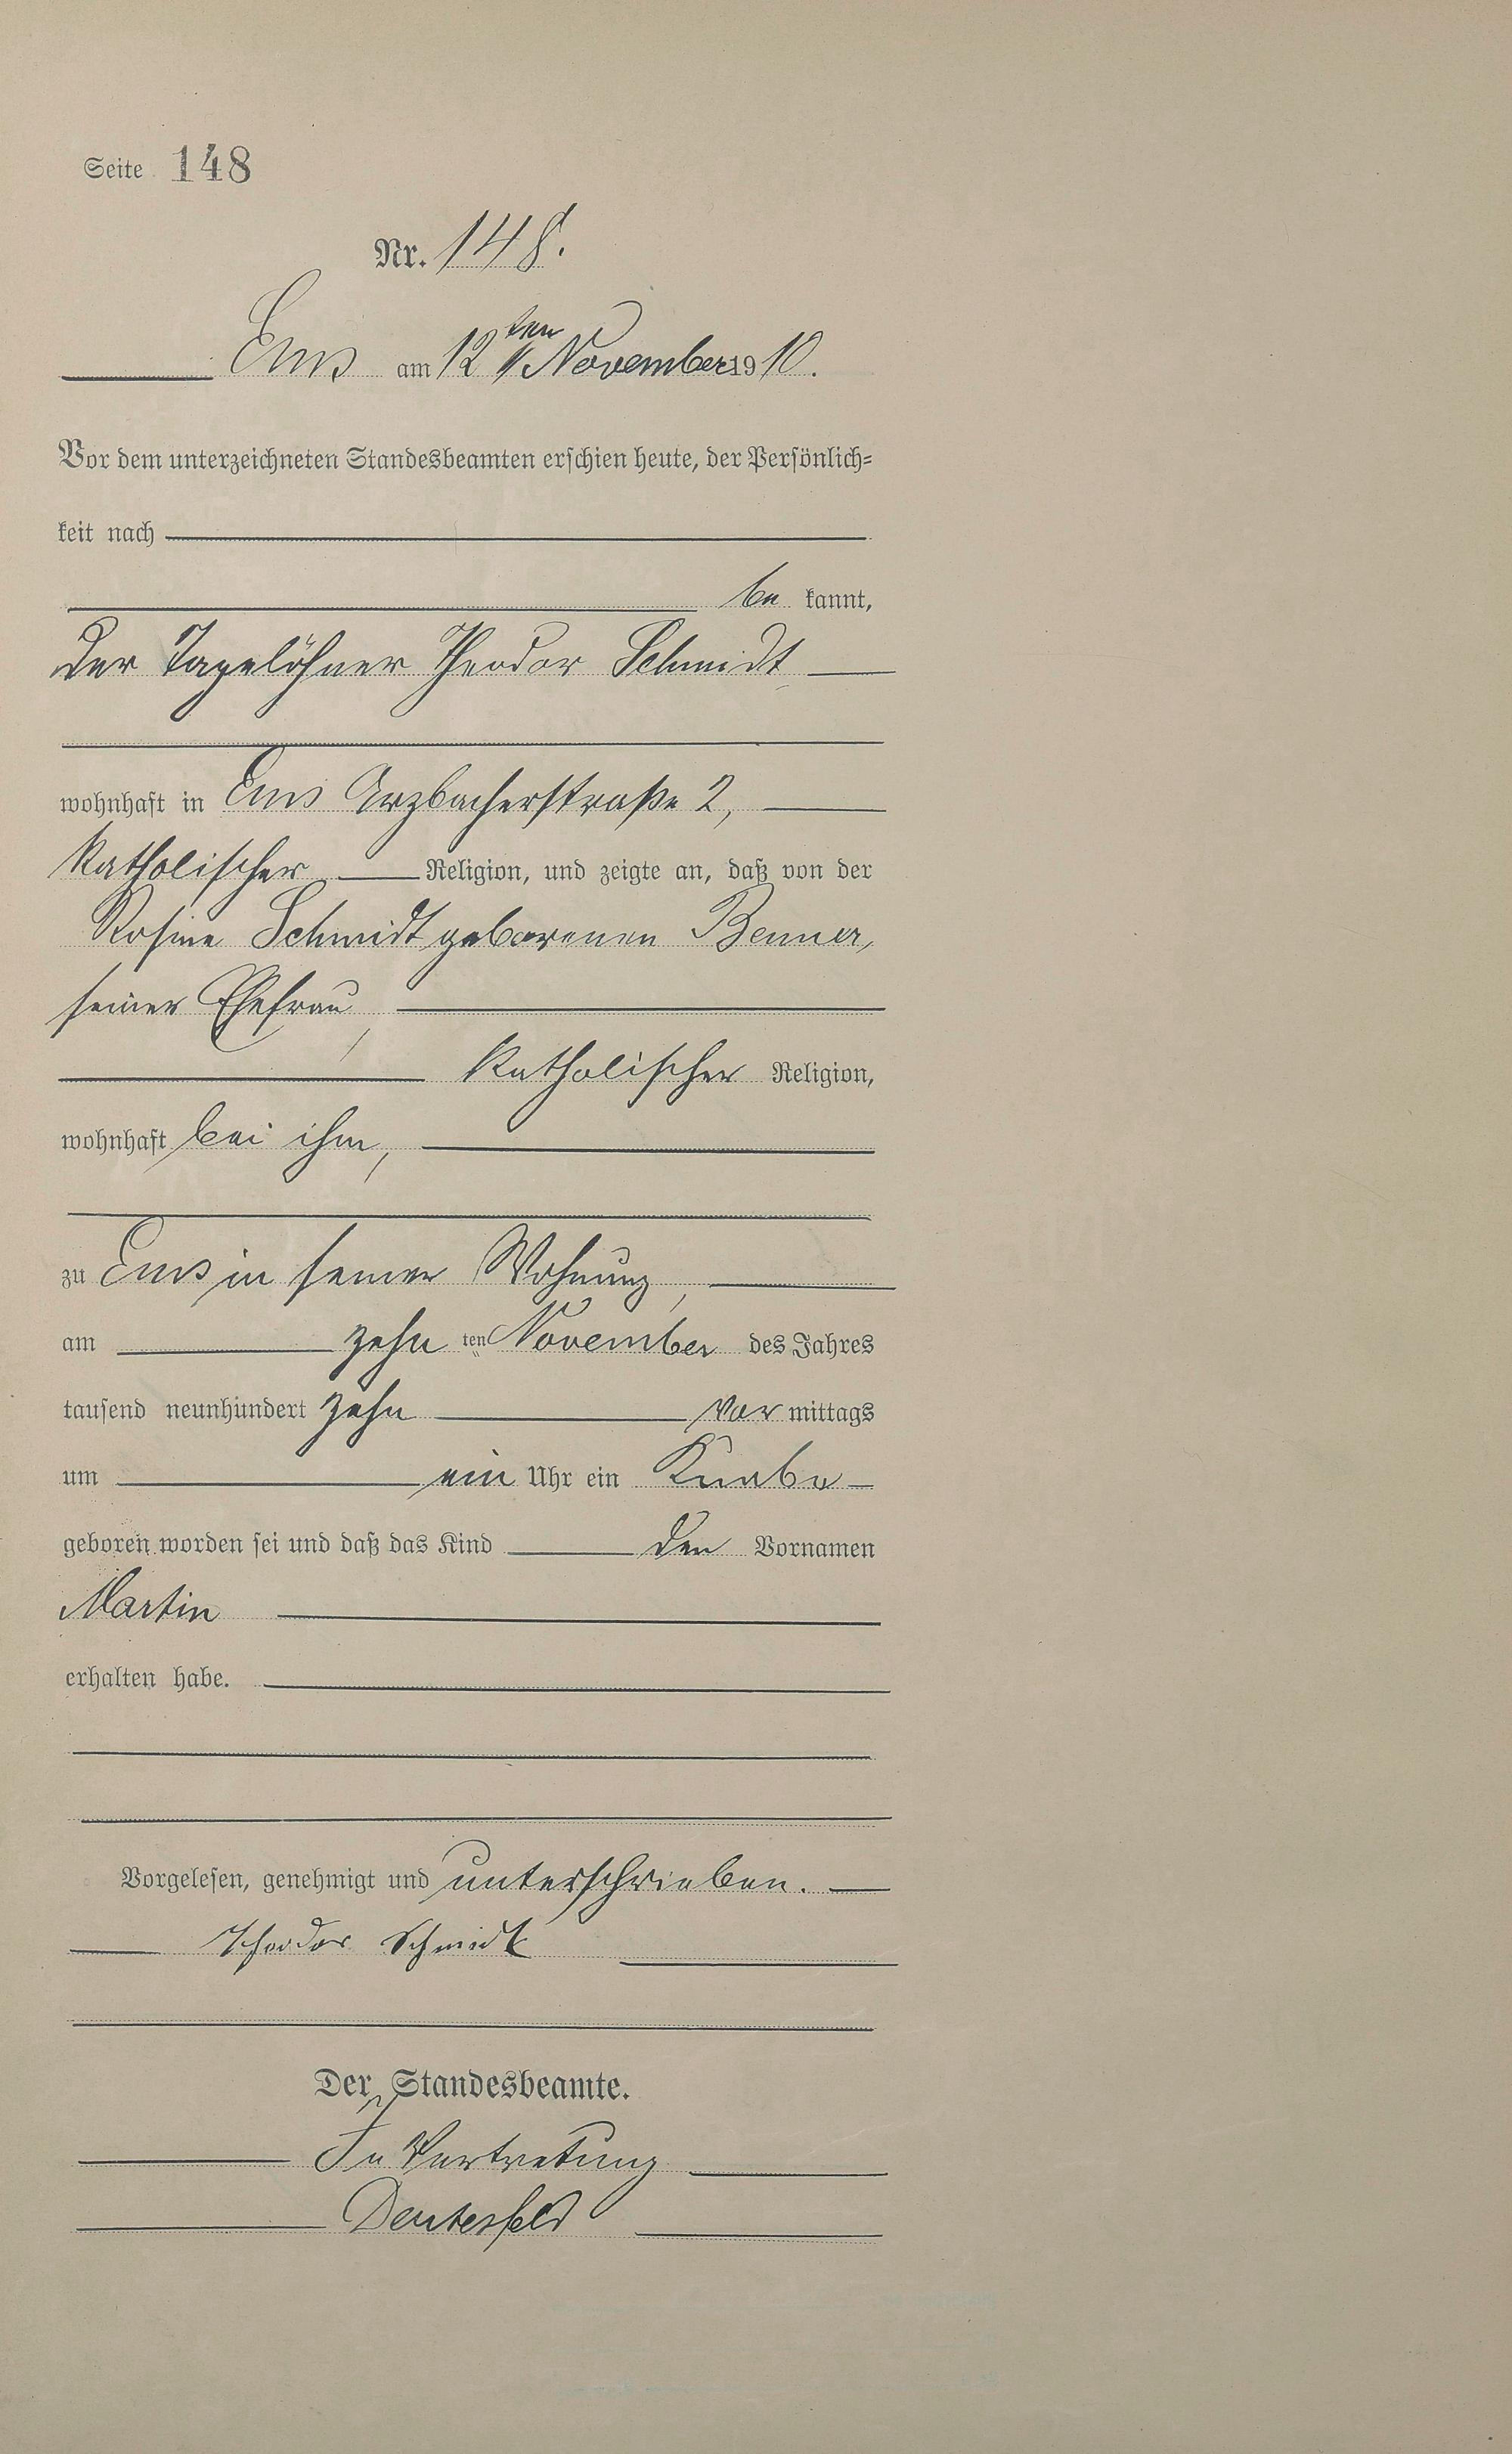 Seite 148
Nr. 148.
Ems am 12ten November 1910.
Vor dem unterzeichneten Standesbeamten erschien heute, der Persönlich=
keit nach
be kannt,
der Tagelöhner Theodor Schmidt
wohnhaft in Ems Arzbacherstraße 2,
katholischer Religion, und zeigte an, daß von der
Rosine Schmidt geborenen Benner,
seiner Ehefrau,
katholischer Religion,
wohnhaft bei ihm,
zu Ems in seiner Wohnung,
am zehn ten November des Jahres
tausend neunhundert zehn vor mittags
um ein Uhr ein Knabe
geboren worden sei und daß das Kind den Vornamen
Martin
erhalten habe.
Vorgelesen, genehmigt und unterschrieben.
Theodor Schmidt
Der Standesbeamte.
In Vertretung
Deutesfeld